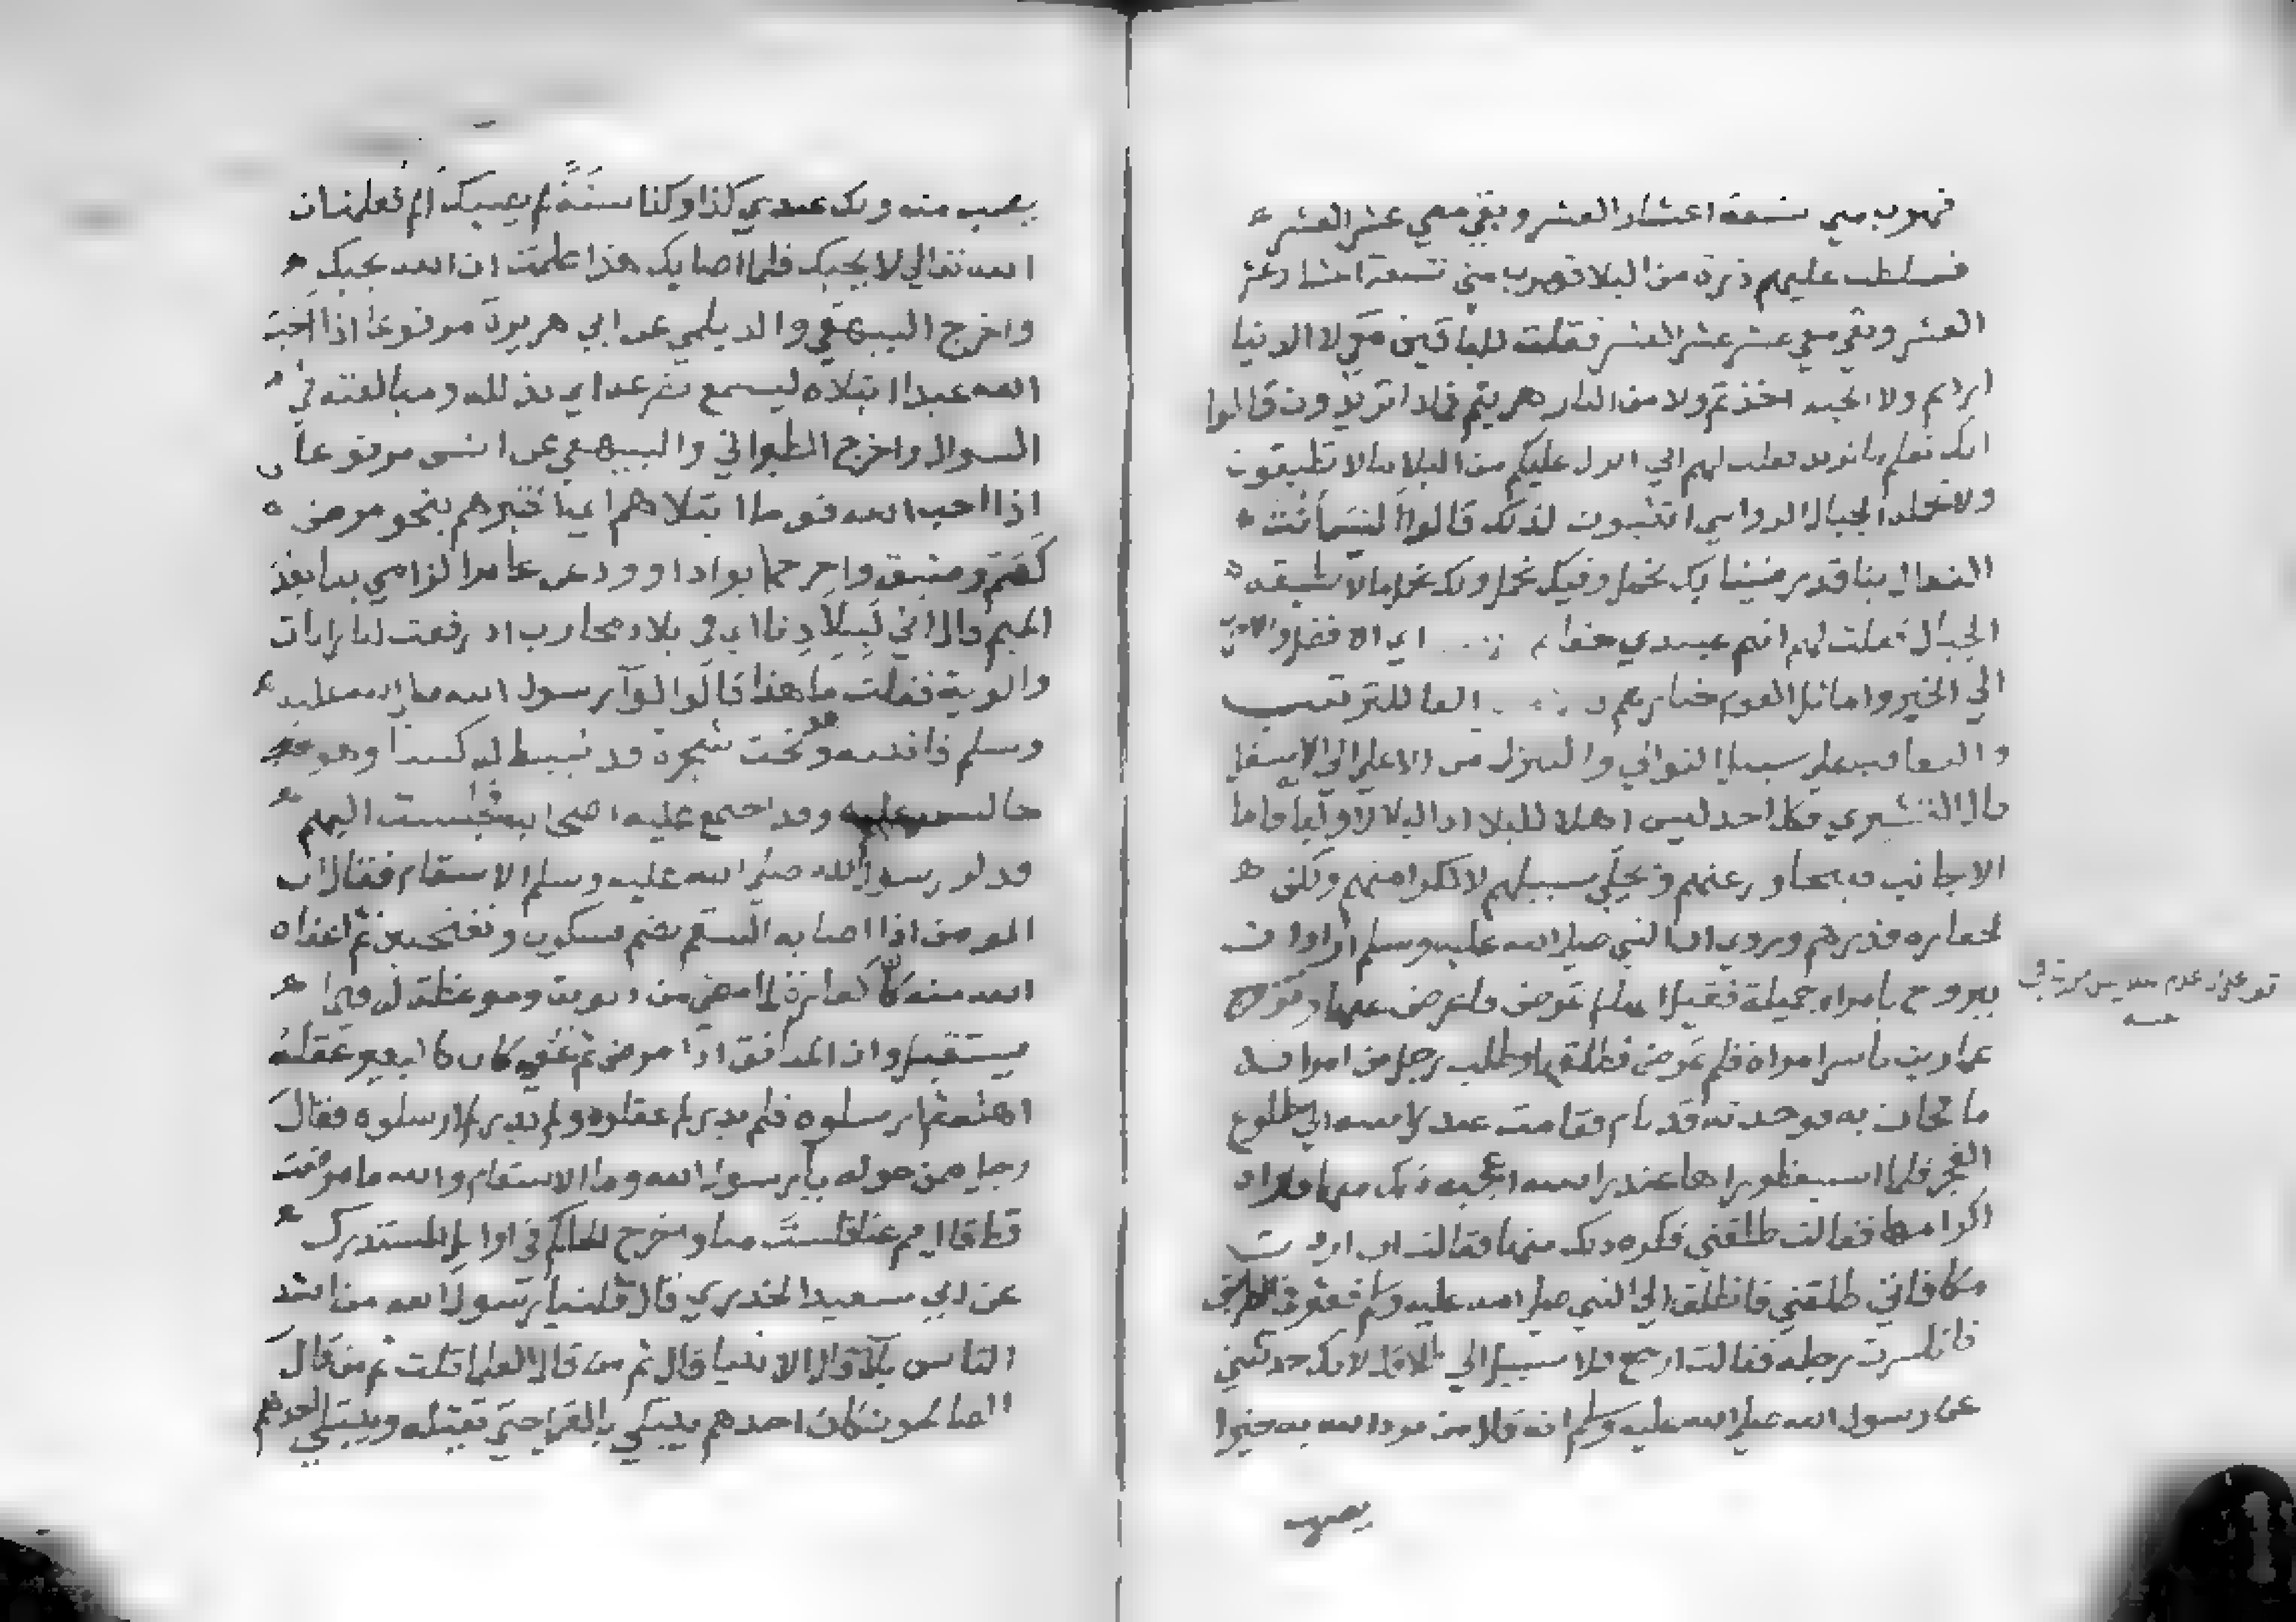 فهرب مني تسعة اعشار العشر وبقي معي عشر العشر
فسلطت عليهم ذرة من البلا فهرب مني تسعة اعشار عشر
العشر وبقي معي عشر عشر العشر فقلت للباقين معي لا الدنيا
اردتم ولا الجنة اخذتم ولا من النار هربتم فماذا تريدون قالوا
انك تعلم ما نريد فقلت لهم اني انزل عليكم من البلا ما لا تطيقون
ولا تحمله الجبال الرواسي اتثبتون لذلك قالوا الست انت
الفعال بنا قد رضينا بك نحمل وفيك نحمل ولك نحمل ما لا تطيقه
الجبال فقلت لهم انتم عبيدي حقا اي
الي الخير واماثل القوم خيارهم الفا للترتيب
والتعاقب علي سبيل التوالي والتنزل من الاعلي الي الاسفل
قال القشيري فكل احد ليس اهلا للبلا اذ البلا للاوليا فاما
الاجانب فيتجاوز عنهم ويخلي سبيلهم لا لكرامتهم ولكن
لحقارة قدرهم وروي ان النبي صلي الله عليه وسلم اراد ان
يتزوج بامراة جميلة فقيل انها لم تمرض فاعرض عنها وتزوج
عمار بن ياسر امراة فلم تمرض فطلقها وطلب رجل من امراته
ماكان به فوجدته قد نام فقامت عند راسه الي طلوع
الفجر فلما استيقظ وراها عند راسه اعجبه ذلك منها واراد
اكرامها فقالت طلقني فكره ذلك منها فقالت ان اردت
مكافاتي طلقني فانطلق الي النبي صلي الله عليه وسلم فعثر في الطريق
فانكسرت رجله فقالت ارجع فلا سبيل الي الطلاق لانك حدثتني
عن رسول الله صلي الله عليه وسلم انه قال من يرد الله به خيرا
يصب
يصب منه ولك عندي كذا وكذا سنة لم يصبك الم فعلمت ان
الله تعالي لا يحبك فلما اصابك هذا علمت ان الله يحبك
واخرج البيهقي والديلمي عن ابي هريرة مرفوعا اذا احب
الله عبدا ابتلاه ليسمع تضرعه اي تذلله ومبالغته في
السوال واخرج الطبراني والبيهقي عن انس مرفوعا
اذا احب الله قوما ابتلاهم اي اختبرهم بنحو مرض
كهم وضيق واخرج ابو داوود عن عامر الرامي بيا بعد
الميم قال اني لببلادنا اي في بلاد محارب اذ رفعت لنا رايات
والوية فقلت ما هذا قالوا لوآ رسول الله صلي الله عليه
وسلم فاتيته وهو تحت شجرة قد بسط له كسا وهو
جالس عليه وقد اجتمع عليه اصحابه فجلست اليهم
فذكر رسول الله صلي الله عليه وسلم الاسقام فقال ان
المومن اذا اصابه السقم بضم فسكون وبفتحتين ثم اعفاه
الله منه كان كفارة لما مضي من ذنوبه وموعظة له فيما
يستقبل وان المنافق اذا مرض ثم عفي كان كالبعير عقله
اهله ثم ارسلوه فلم يدر لم عقلوه ولم يدر لم ارسلوه فقال
رجل ممن حوله يا رسول الله وما الاسقام والله ما مرضت
قط قال قم عنا فلست منا واخرج الحاكم في اوايل المستدرك
عن ابي سعيد الخدري قال قلت يا رسول الله من اشد
الناس بلآ قال الانبيا قال ثم من قال العلما قلت ثم من قال
الصالحون كان احدهم يبتلي بالقمل حتي تقتله ويبتلي احدهم